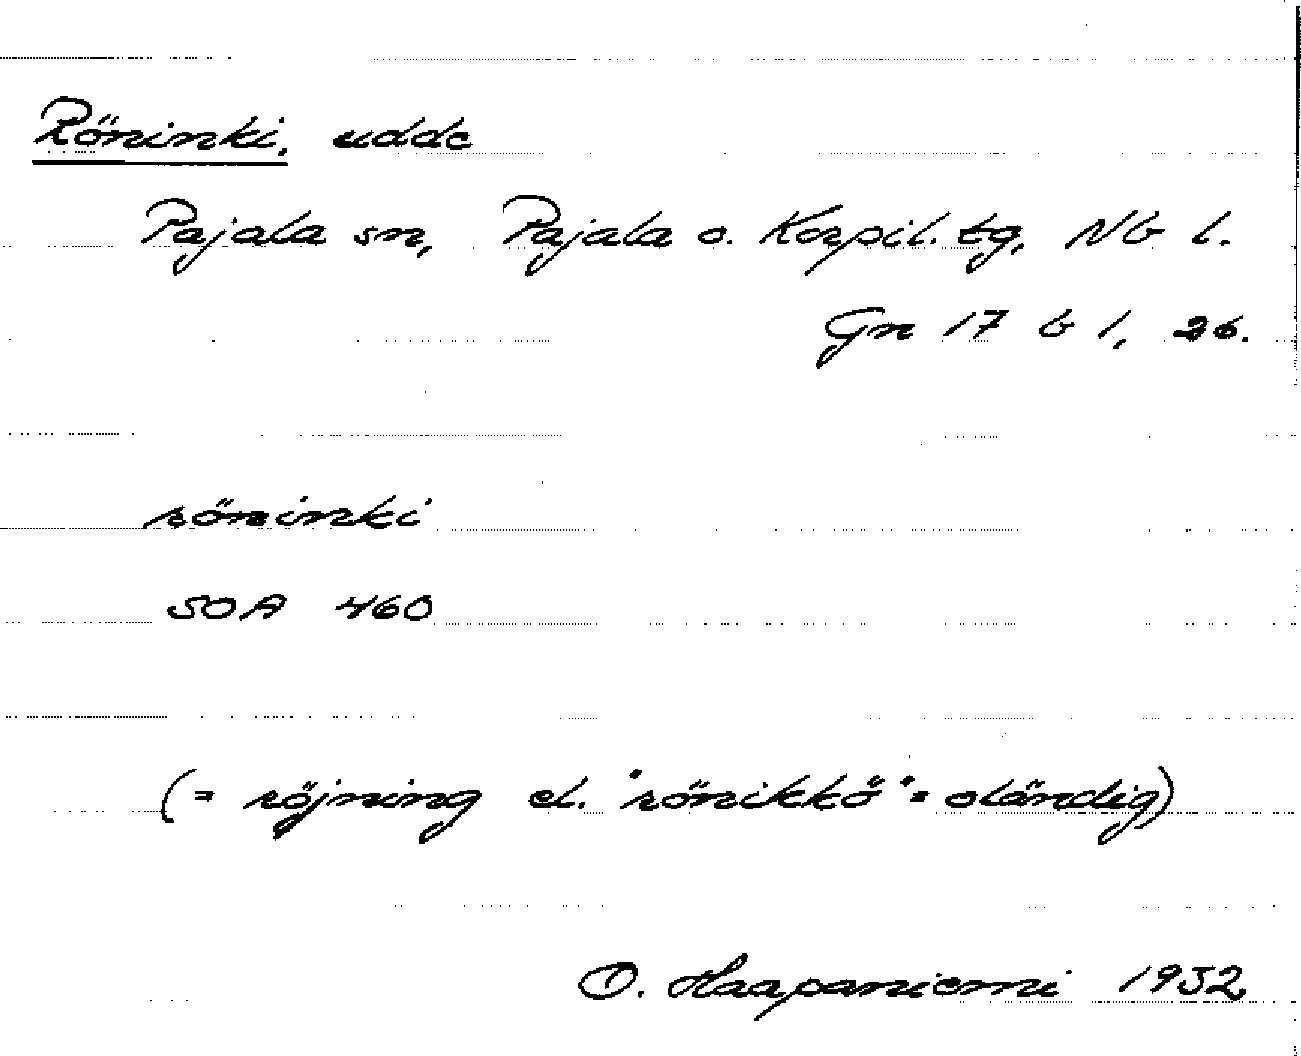 Röninki, udde
Pajala sn, Pajala o. Korpil. tg, Nb l.
Gn 17 b 1, 26.
röninki
SOA 460
(= röjning el. "rönikkö" = oländig)
O. Haapaniemi 1932